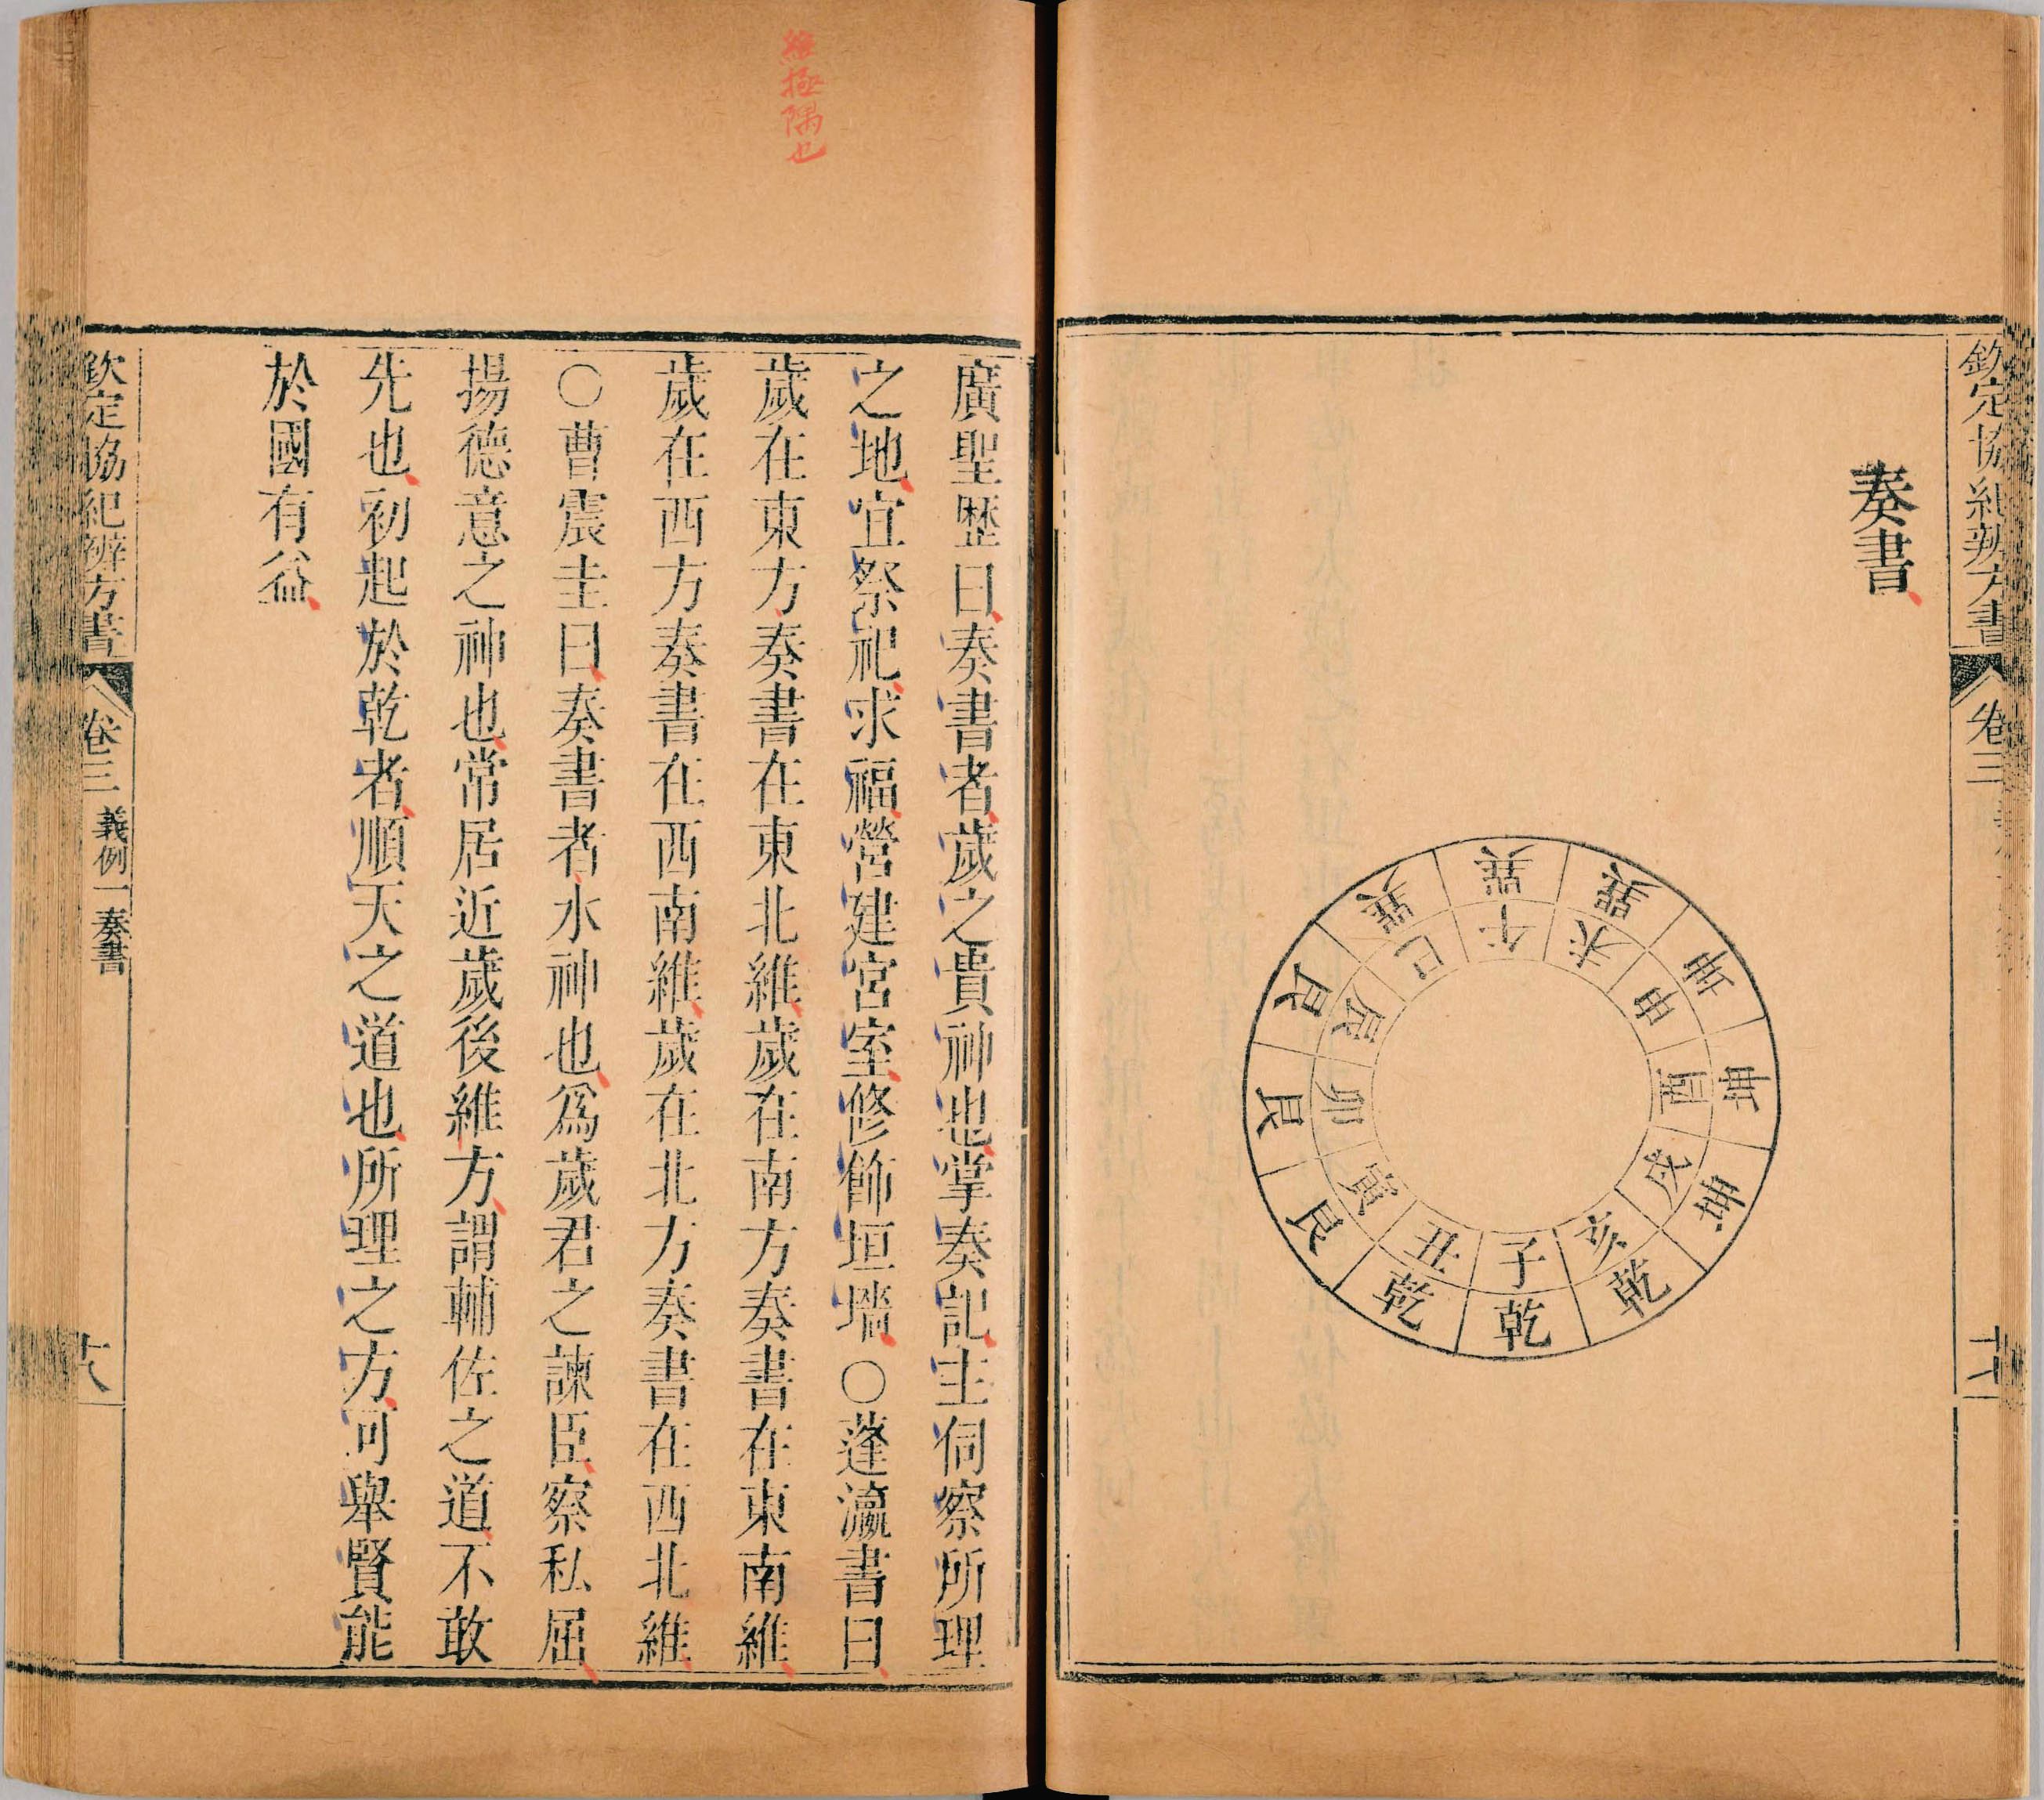 欽定協紀辨方書
卷三
奏書
巽 巽 巽
坤 坤 坤
乾 乾 乾
艮 艮 艮
巳 午 未 申 酉 戌 亥 子 丑 寅 卯 辰
維極隅也
廣聖歷曰奏書者歲之貴神也掌奏記主伺察所理
之地宜祭祀求福營建宮室修飾垣墻○蓬瀛書曰
歲在東方奏書在東北維歲在南方奏書在東南維
歲在西方奏書在西南維歲在北方奏書在西北維
○曹震圭曰奏書者水神也為歲君之諫臣察私屈
揚德意之神也常居近歲後維方謂輔佐之道不敢
先也初起於乾者順天之道也所理之方可舉賢能
於國有益
欽定協紀辨方書
卷三
義例一奏書